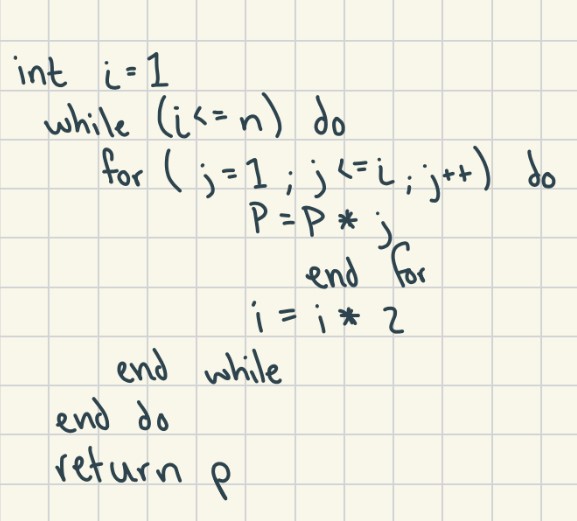 int i = 1
while (i <= n) do
for ( j = 1 ; j <= i ; j++) do
P = P * j
end for
i = i * 2
end while
end do
return p